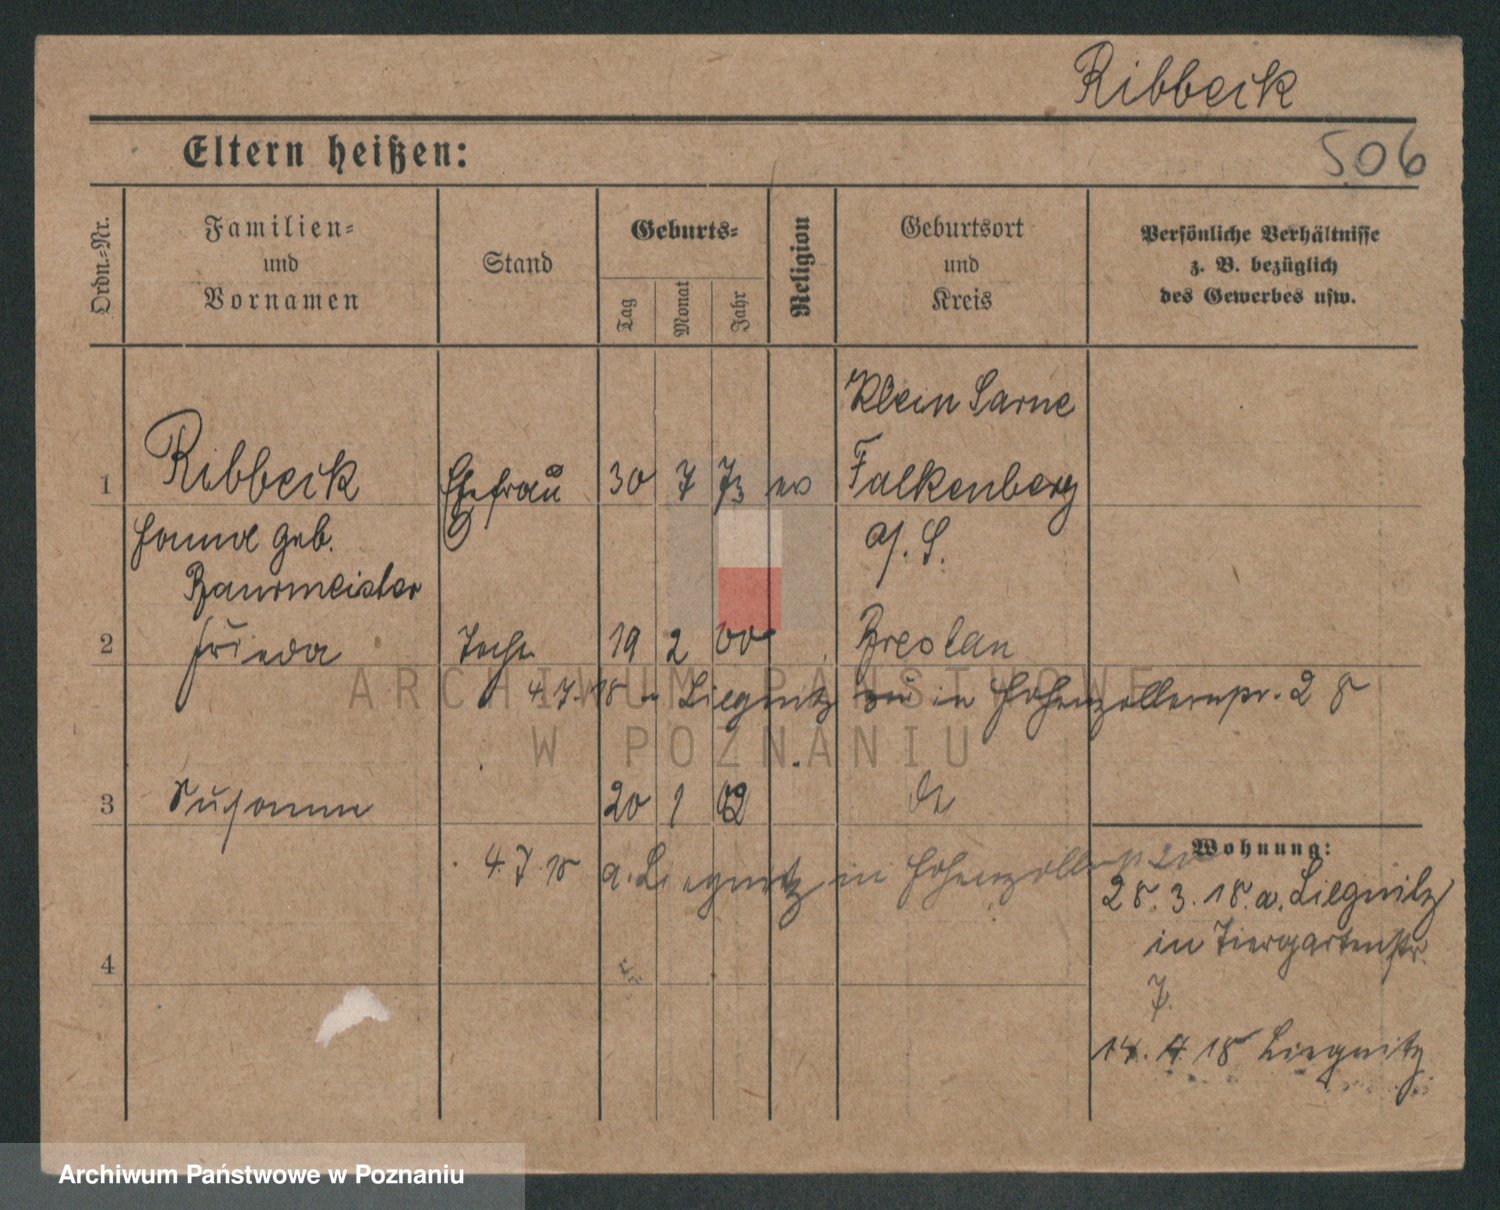 Ribbeck
506
Eltern heißen:
Ordn.-Nr.
Familien-
und
Vornamen
Stand
Geburts-
Tag
Monat
Jahr
Religion
Geburtsort
und
Kreis
Persönliche Verhältnisse
z. B. bezüglich
des Gewerbes usw.
Klein Sarne
1 Ribbeck Ehefrau 30 7 73 ev Falkenberg
geb. a/S.
Baurmeister
2 Frieda Tocht. 19 2 00 Breslau
4.7.18 Liegnitz in Hohenzollernpr. 28
3 Susanna 20 1 02
4.7.18 a. Liegnitz in
Wohnung:
28.3.18. a. Liegnitz
in Tiergartenstr.
7.
4
14. 4 18 Liegnitz
ARCHIWUM PAŃSTWOWE
W POZNANIU
Archiwum Państwowe w Poznaniu